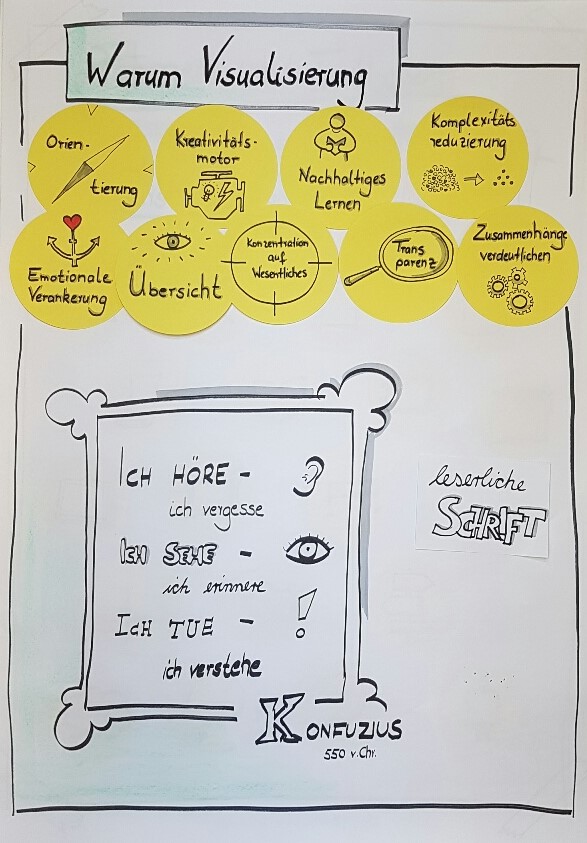 Warum Visualisierung
Orien-
tierung
Kreativitäts-
motor
Nachhaltiges
Lernen
Komplexitäts
reduzierung
Emotionale
Verankerung
Übersicht
Konzentration
auf
Wesentliches
Trans
parenz
Zusammenhänge
verdeutlichen
ICH HÖRE -
ich vergesse
ICH SEHE -
ich erinnere
ICH TUE -
!
ich verstehe
KONFUZIUS
550 v. Chr.
leserliche
SCHRIFT